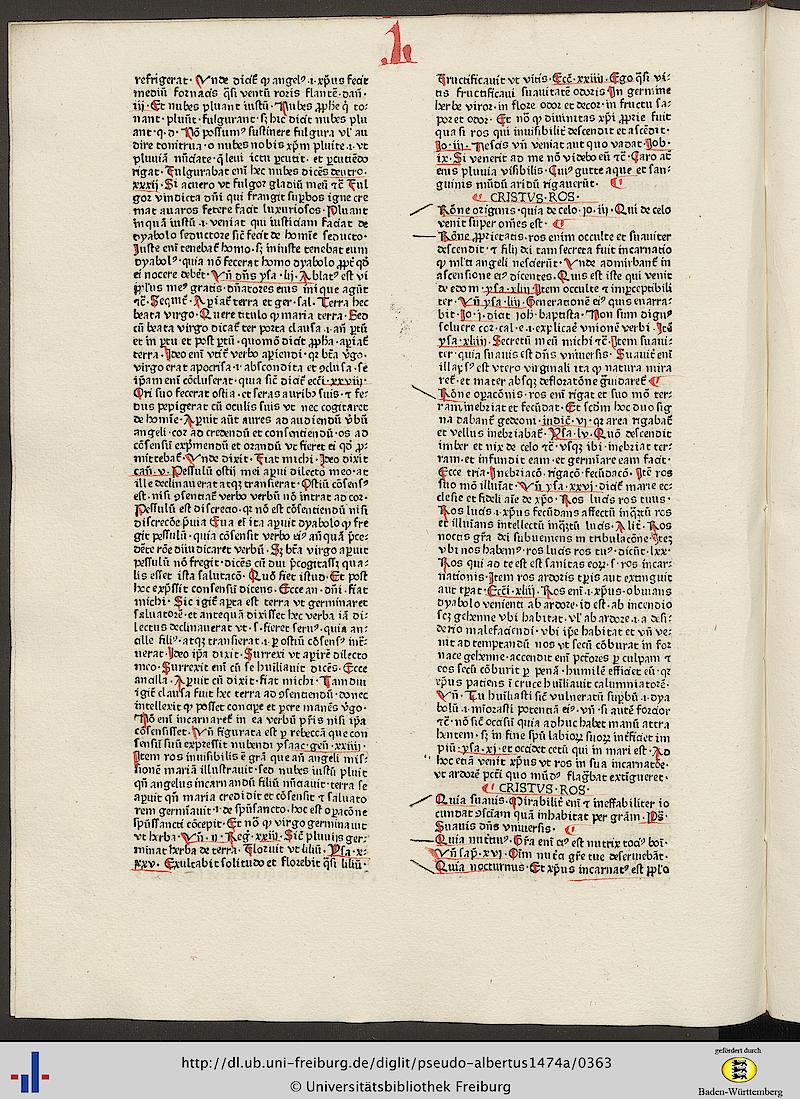 1
refrigerat. Vnde dicit̄ ꝙ angelꝰ .i. xp̄us fecit
mediū fornacis q̄si ventū roris flantē. dan̄.
iij. Et nubes pluant iustū. Nubes ꝓph̄e q̄ to⸗
nant. pluūt. fulgurant. sꝫ hic dicit nubes plu
ant. q. d. Nō possumꝰ sustinere fulgura vl̓ au
dire tonitrua. o nubes nobis xp̄m pluite .i. vt
pluuiā nūciate. q̄ leui ictu ꝑcutit. et ꝑcutiēdo
rigat. Fulgurabat em̄ hec nubes dicēs deutro.
xxxij. Si acuero vt fulgor gladiū meū ⁊c̄. Ful
gor vindicta dn̄i qui frangit suꝑbos igne cre
mat auaros fetere facit luxuriosos. Pluant
inquā iustū .i. veniat qui iusticiam faciat de
dyabolo seductore sic̄ fecit de homīe seducto.
Iuste em̄ tenebat̄ homo. sꝫ iniuste tenebat eum
dyabolꝰ. quia nō fecerat homo dyabolo ꝓpt̓ qd̄
ei nocere debet̄. Vn̄ dn̄s ysa. lij. Ablatꝰ est vi
pl̓us meꝰ gratis. dn̄atores eius inique agūt
⁊c̄. Sequit̄. Apiat̄ terra et ger. sal. Terra hec
beata virgo. Quere titulo ꝙ maria terra. Sed
cū beata virgo dicat̄ ter porta clausa .i. an̄ ꝑtū
et in ꝑtu et post ꝑtū. quomō dicit ꝓph̄a. apiat̄
terra. Ideo em̄ vtit̄ verbo apiendi. qꝛ bt̄a v̓go.
virgo erat apocrisa .i. abscondita et ↄclusa. se
ip̄am em̄ cōcluserat. quia sic̄ dicit̄ ecci. xxviij.
Ori suo fecerat ostia. et seras auribꝰ suis. ⁊ fe⸗
dus pepigerat cū oculis suis vt nec cogitaret
de homīe. Apuit aūt aures ad audiendū v̓bū
angeli. cor ad credendū et consentiendū. os ad
cōsensū exp̓mendū et orandū vt fieret ei qd̄ ꝓ⸗
mittebat̄. Vnde dixit. Fiat michi. Ideo dixit
can̄. v. Pessulū ostij mei apui dilecto meo. at
ille declinauerat atqꝫ transierat. Ostiū cōsensꝰ
est. nisi ↄsentiat̄ verbo verbū nō intrat ad cor.
Pessulū est discrecio. qꝛ nō est cōsentiendū nisi
discrecōe p̄uia Eua em̄ ita apuit dyabolo ꝙ fre
git pessulū. quia cōsensit verbo eiꝰ an̄quā p̄ce⸗
dēte rōne diiudicaret verbū. Sꝫ bt̄a virgo apuit
pessulū nō fregit. dicēs cū diu p̄cogitassꝫ qua⸗
lis esset ista salutacō. Quō fiet istud. Et post
hoc exp̓ssit consensū dicens. Ecce an. dn̄i. fiat
michi. Sic igit̄ apta est terra vt germinaret
saluatorē. et antequā dixisset hec verba iā di⸗
lectus declinauerat vt .s. fieret seruꝰ. quia an⸗
cille filiꝰ. atqꝫ transierat .i. ꝑ ostiū cōsensꝰ int̄⸗
uerat Ideo ip̄a dixit. Surrexi vt apirē dilecto
meo. Surrexit em̄ cū se hūiliauit dicēs. Ecce
ancilla. Apuit cū dixit. fiat michi. Tamdiu
igit̄ clausa fuit hec terra ad ↄsentiendū. donec
intellexit ꝙ posset concipe et ꝑere manēs v̓go.
Nō em̄ incarnaret̄ in ea verbū pr̄is nisi ip̄a
cōsensisset. Vn̄ figurata est ꝑ rebeccā que con
sensū suū expressit nubendi ysaac. gen̄. xxiiij.
Item ros inuisibilis ē grā que an̄ angeli mis⸗
sionē mariā illustrauit. sed nubes iustū pluit
qn̄ angelus incarnandū filiū nūciauit. terra se
apuit qn̄ maria credidit et cōsensit ⁊ saluato
rem germiauit .i. de spūsancto. hoc est oꝑacōne
spūssancti cōcepit. Et nō ꝙ virgo germinauit
vt herba. Vn̄. ij. Reg. xxiij. Sic̄ pluuijs ger⸗
minat herba de terra. Floruit vt liliū. Ysa. x⸗
xxv. Exultabit solitudo et florebit q̄si liliū.
Fructificauit vt vitis. Ecci. xxiiij. Ego q̄si vi⸗
tis fructificaui suauitatē odoris In germine
herbe viror. in flore odor et decor. in fructu sa⸗
por et odor. Et nō ꝙ diuinitas xp̄i ꝓprie fuit
quasi ros qui inuisibilit̄ descendit et ascēdit.
Io. iij. Nescis vn̄ veniat aut quo vadat. Iob.
ix. Si venerit ad me nō videbo eū ⁊c̄. Caro at̄
eius pluuia visibilis. Cuiꝰ gutte aque et san⸗
guinis mūdū aridū rigauerūt.
CRISTVS. ROS.
Rōne originis. quia de celo. jo. iij. Qui de celo
venit super om̄es est.
Rōne ꝓprietatis. ros enim occulte et suauiter
descendit. ⁊ filij dei tam secreta fuit incarnatio
ꝙ ml̓ti angeli nescierūt. Vnde admirbant̄ in
ascensione eiꝰ dicentes. Quis est iste qui venit
de edom. ysa. xliij Item occulte ⁊ imꝑceptibili
ter. Vn̄ ysa. liij. Generationē eiꝰ quis enarra⸗
bit. Io. j. dicit joh̄. baptista. Non sum dignꝰ
soluere cor. cal. e. .i. explicaē vnionē verbi. Itē
ysa. xliij. Secretū meū michi ⁊c̄. Item suaui⸗
ter. quia suauis est dn̄s vniuersis. Suauit̄ em̄
illapsꝰ est vtero virginali ita ꝙ natura mira
ret̄. et mater absqꝫ defloratōne gauderet̄
Rōne oꝑacōnis. ros em̄ rigat et suo mō ter⸗
ram inebriat et fecūdat. Et scd̄m hec duo sig
na dabant̄ gedeoni. iudic̄. vj. qꝛ area rigabat̄
et vellus inebriabat̄. Ysa. lv. Quō descendit
imber et nix de celo ⁊c̄. vsqꝫ ibi. inebriat ter⸗
ram. et infundit eam. et germiare eam facit.
Ecce tria. Inebriacō. rigacō. fecūdacō. Itē ros
suo mō illuīat. Vn̄ ysa. xxvj. dicit̄ marie ec⸗
clesie et fideli aīe de xp̄o. Ros lucis ros tuus.
Ros lucis .i. xp̄us fecūdans affectū inq̄ꝫtū ros
et illuīans intellectū inq̄ꝫtū lucis. A lit̄. Ros
noctis gr̄a dei subueniens in tribulacōne. Itꝫ
vbi nos habemꝰ. ros lucis ros tuꝰ. dicūt. lxx.
Ros qui ad te est est sanitas eoꝝ. s. ros incar⸗
nationis. Item ros ardoris tp̄is aut extinguit
aut tꝑat. Ecci. xliij. Ros em̄ .i. xp̄us. obuians
dyabolo venienti ab ardore. id est. ab incendio
scꝫ gehenne vbi habitat. vl̓ ab ardore .i. a desi⸗
derio malefaciendi. vbi ip̄e habitat et vn̄ ve⸗
nit ad temptandū nos vt secū cōburat in for
nace gehenne. accendit em̄ pctōres ꝑ culpam ⁊
eos secū cōburit ꝑ penā. humilē efficiet eū. qꝛ
xp̄us patiens ī cruce hūiliauit calumniatorē.
Vn̄. Tu hūiliasti sic̄ vulneratū suꝑbū .i. dya
bolū .i. mīorasti potentiā eiꝰ. vn̄. si autē forcior
⁊c̄. nō sic̄ occisū quia adhuc habet manū attra
hentem. sꝫ in fine spū labioꝝ suoꝝ int̓ficiet im
piū. ysa. xj. et occidet cetū qui in mari est. Ad
hoc etiā venit xp̄us vt ros in sua incarnatōe.
vt ardorē pctī quo mūdꝰ flagrabat extīgueret.
CRISTVS. ROS.
Quia suauis. Mirabilit̄ em̄ ⁊ ineffabiliter io
cundat ↄsciam quā inhabitat per grām. Ps̄.
Suauis dn̄s vniuersis.
Quia nutriuꝰ. Gr̄a em̄ eiꝰ est nutrix tociꝰ boī.
Vn̄ sap̄. xvj. Oīm nutrici gr̄e tue deseruiebāt.
Quia nocturnus. Et xp̄us incarnatꝰ est ꝓpt̓o
http://dl.ub.uni-freiburg.de/diglit/pseudo-albertus1474a/0363
© Universitätsbibliothek Freiburg
gefördert durch
Baden-Württemberg